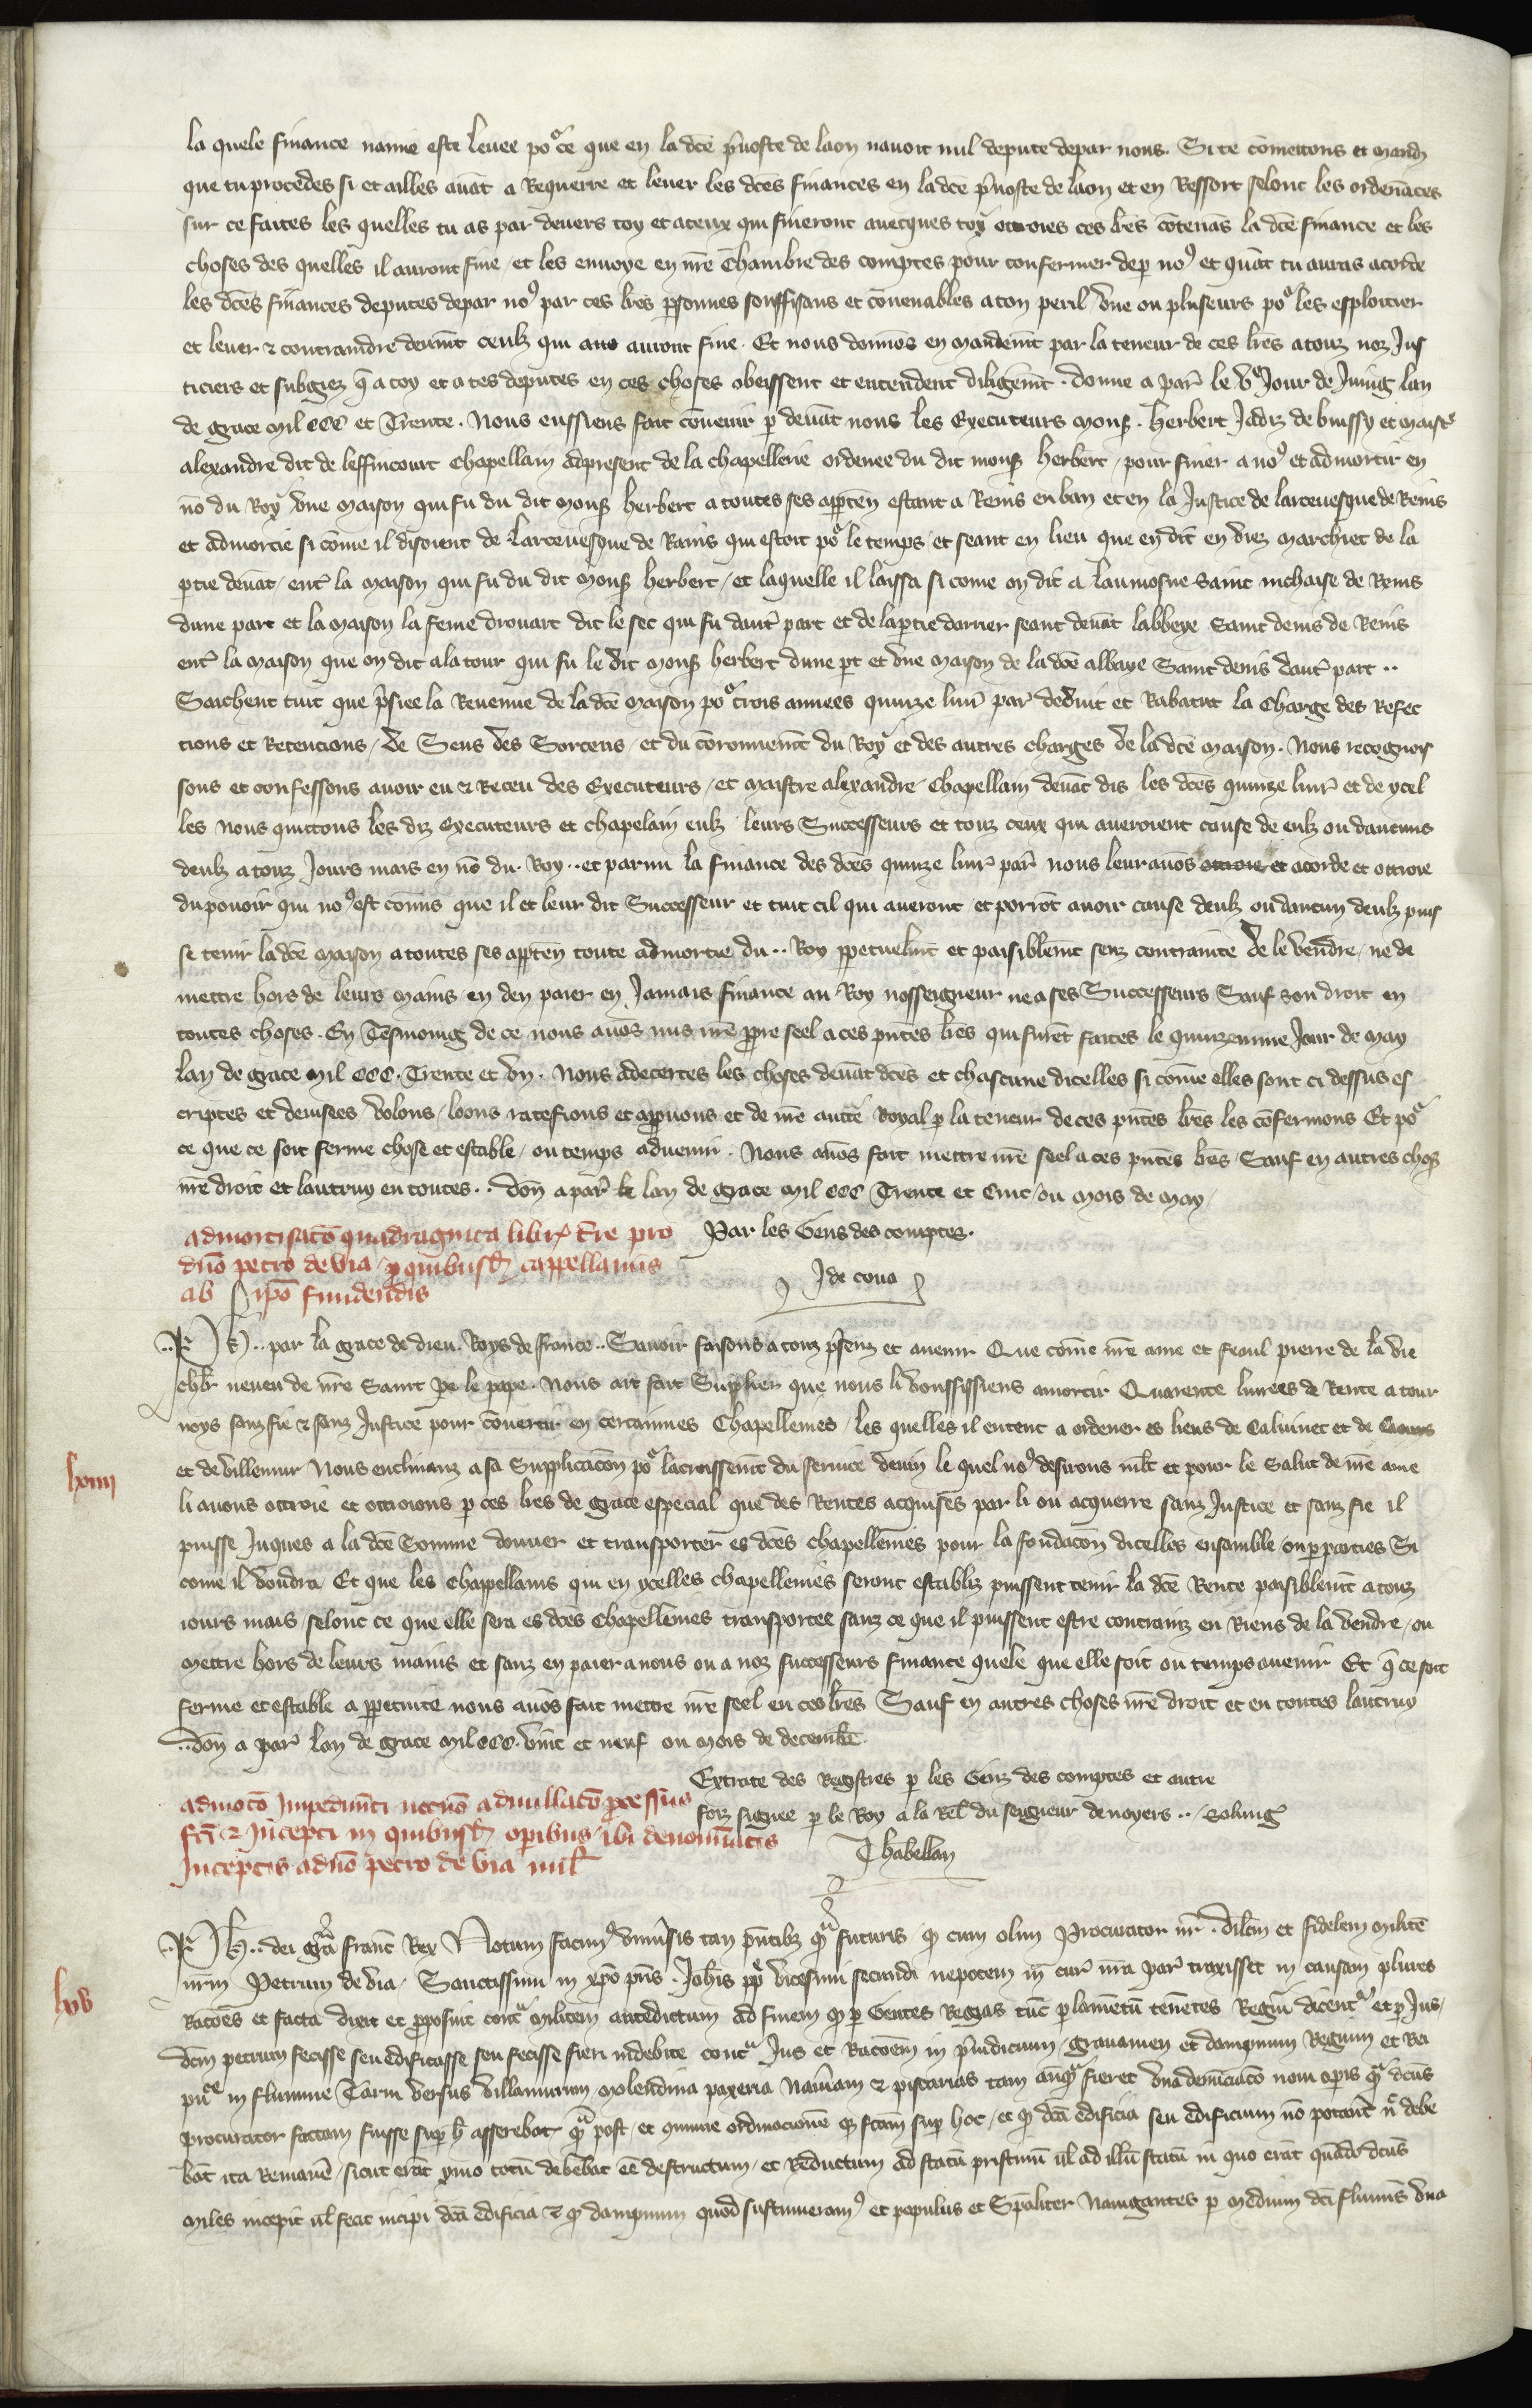 la quele finance namie este levee por ce que en la dce pvoste de laon navoit nul depute depar nous. Si te cometons et mandz
que tu procedes si et ailles avat a Requerre et lever les dces finances en la dce pvoste de laon et en Ressort selonc les ordenaces
sur ce faites les quelles tu as par devers toy et a ceux qui fineront avecques toy ottroies ces lres cotenas la dce finance et les
choses des quelles il auront fine / et les envoye en nre Chambre des comptes pour confermer dep no9 et quat tu auras acorde
les dces finances deputes depar no9 par ces lres psonnes souffisans et covenables a ton peril une ou pluseurs por les esploitier
et lever & contraindre deumt ceulz qui auo auront fine. Et nous donnos en mandemt par la teneur de ces lres a touz noz Jus
ticiers et subgiez q a toy et a tes deputes en ces choses obeissent et entendent diligemt. donne a par le ve Jour de Juing lan
de grace mil ccc et Trente. Nous eussiens fait covenir p devat nous les Executeurs mons. herbert Jadiz de buissy et maistre
alexandre dit de leffincourt Chapellain adpresent de la chapellerie ordenee du dit mons herbert / pour finer a no9 et admortir en
no du Roy une maison qui fu du dit mons herbert a toutes ses apten estant a Reins en ban et en la Justice de larcevesque de Reins
et admortie si come il disoient de larcevesque de Rains qui estoit por le temps / et seant en lieu que en dit en viez marchiet de la
ptie devat / entr la maison qui fu du dit mons herbert / et laquelle il laissa si come on dit a laumosne Saint nichaise de Reins
dune part et la maison la feme drouart dit le sec qui fu dautr part et de la ptie darrier seant devat labbeye Saint denis de Reins
entr la maison que on dit a la tour qui fu le dit mons herbert dune pt et une maison de la dce abbaye Saint denis dautr part ..
Saichent tuit que psiee la Revenue de la dce maison por trois annees quinze livr par deduit et Rabatut la Charge des Refec
tions et Retencions / de Sens des Sorcens / et du coronnemt du Roy et des autres charges de la dce maison. Nous recognois
sons et confessons avoir eu & Receu des Executeurs / et maistre alexandre Chapellain devat dis les dces quinze livr et de ycel
les nous quittons les diz Executeurs et chapelain eulz leurs Successeurs et touz ceux qui averoient cause de eulz ou daucuns
deulz a touz Jours mais en no du Roy .. et parmi la finance des dces quinze livr par nous leur avos ottroie et acorde et ottroie
du povoir qui no9 est comis que il et leur dit Successeur et tuit cil qui averont et porrot avoir cause deulz ou daucun deulz puis
se tenir la dce maison a toutes ses apten toute admortie du .. Roy ppetuelmt et paisiblemt senz contrainte de le vendre / ne de
mettre hors de leurs mains en den paier en Jamais finance au Roy nosseigneur ne a ses Successeurs Sauf son droit en
toutes choses. En Tesmoing de ce nous avos mis nre ppre seel a ces pntes lres qui furet faites le quinzenme Jour de may
lan de grace mil ccc. Trente et un. Nous adecertes les choses devat dces et chascune dicelles si come elles sont ci dessus es
criptes et devisees volons / loons ratefions et appvons et de nre aucte Royal p la teneur de ces pntes lres les cofermons Et por
ce que ce soit ferme chose et estable / ou temps advenir. Nous avos fait mettre nre seel a ces pntes lres / Sauf en autres chos
nre droit et lautruy en toutes .. don a par le lan de grace mil ccc Trente et Cinc / ou mois de may
admortisatio quadraginta libr tre pro
dno petro de via / p quibusd cappellaniis
ab ipo fundendis
Par les Gens des comptes.
J de cona
lxiiii
Ph .. par la grace de dieu. Roys de france .. Savoir faisons a touz psens et avenir Que come nre ame et feaul pierre de la vie
chlr neveu de nre Saint pe le pape. Nous ait fait Suplier que nous li voussissiens amortir Quarente livrees de Rente a tour
noys sanz fie & sanz Justice pour covertir en certainnes Chapellenies / les quelles il entent a ordener es lieus de Calvinet et de
et de villemur Nous enclinanz a sa Supplicacon por lacroissemt du service devin le quel no9 desirons mlt et pour le Salut de nre ame
li avons ottroie et ottroions p ces lres de grace especial que des Rentes acquises par li ou acquerre sanz Justice et sanz fie il
puisse Juques a la dce Somme donner et transporter es dces chapellenies pour la fondacon dicelles ensamble / ou p parties Si
come il voudra Et que les chappellains qui en ycelles chapellenies seront establiz puissent tenir la dce Rente paisiblemt a touz
iours mais selonc ce que elle sera es dces Chapellenies transportee sanz ce que il puissent estre contrainz en Riens de la vendre / ou
mettre hors de leurs mains et sanz en paier a nous ou a noz successeurs finance quele que elle soit ou temps avenir Et q ce soit
ferme et estable a ppetuite nous avos fait mettre nre seel en ces lres Sauf en autres choses nre droit et en toutes lautruy
.. don a par lan de grace mil ccc. vint et neuf ou mois de decembre
Extraite des Registres p les Genz des comptes et autre
foiz signee p le Roy a la Rel du seigneur de noyers ..
Jhabellan
admoto Impedimti necno adnullato pcessus
fci & Incepti in quibusd opibus / ibi denominatis
Inceptis a dno petro de via mil
lxv
Ph .. dei gra franc Rex Notum facim9 univsis tan pntibz qua futuris q cum olim Procurator nr. dilcm et fidelem milite
nrm Petrum de via / Sanctissimi in xpo pris. Johis pp vicesimi secundi nepotem in cur nra par traxisset in causam plures
Racoes et facta dixit et pposuit contra militem antedictum ad finem q p Gentes Regias tuc plametu tenetes Regiu dicentr et p Jus
dcm petrum fecisse seu edificasse seu fecisse fieri indebite contra Jus et Racoem in piudicium / gravamen et dampnum Regium et Rei
puce in flumine Tarni versus villamurum molendina paxeria Naviam & piscarias tam anqua fieret una denuciaco novi opis qua dcus
procurator factam fuisse sup h asserebat qua post / et quinne ordinacione q fcam sup hoc / et q dca edificia seu edificium no poterat nc debe
bat ita Remane / sicut erat ymo totu debebat ee destructum / et Reductum ad statu pristinu ul ad illu statu in quo erat quado dcus
miles incepit ul fecit incipi dca edificia & q dampnum quod sustinueram9 et populus et Spaliter Navigantes p medium dci fluminis una